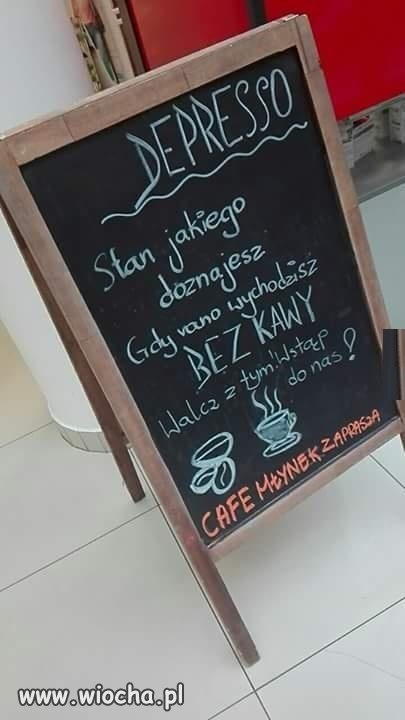 DEPRESSO
Stan jakiego
doznajesz
Gdy rano wychodzisz
BEZ KAWY
Walcz z tym! Wstąp
do nas!
CAFE MŁYNEK ZAPRASZA
www.wiocha.pl